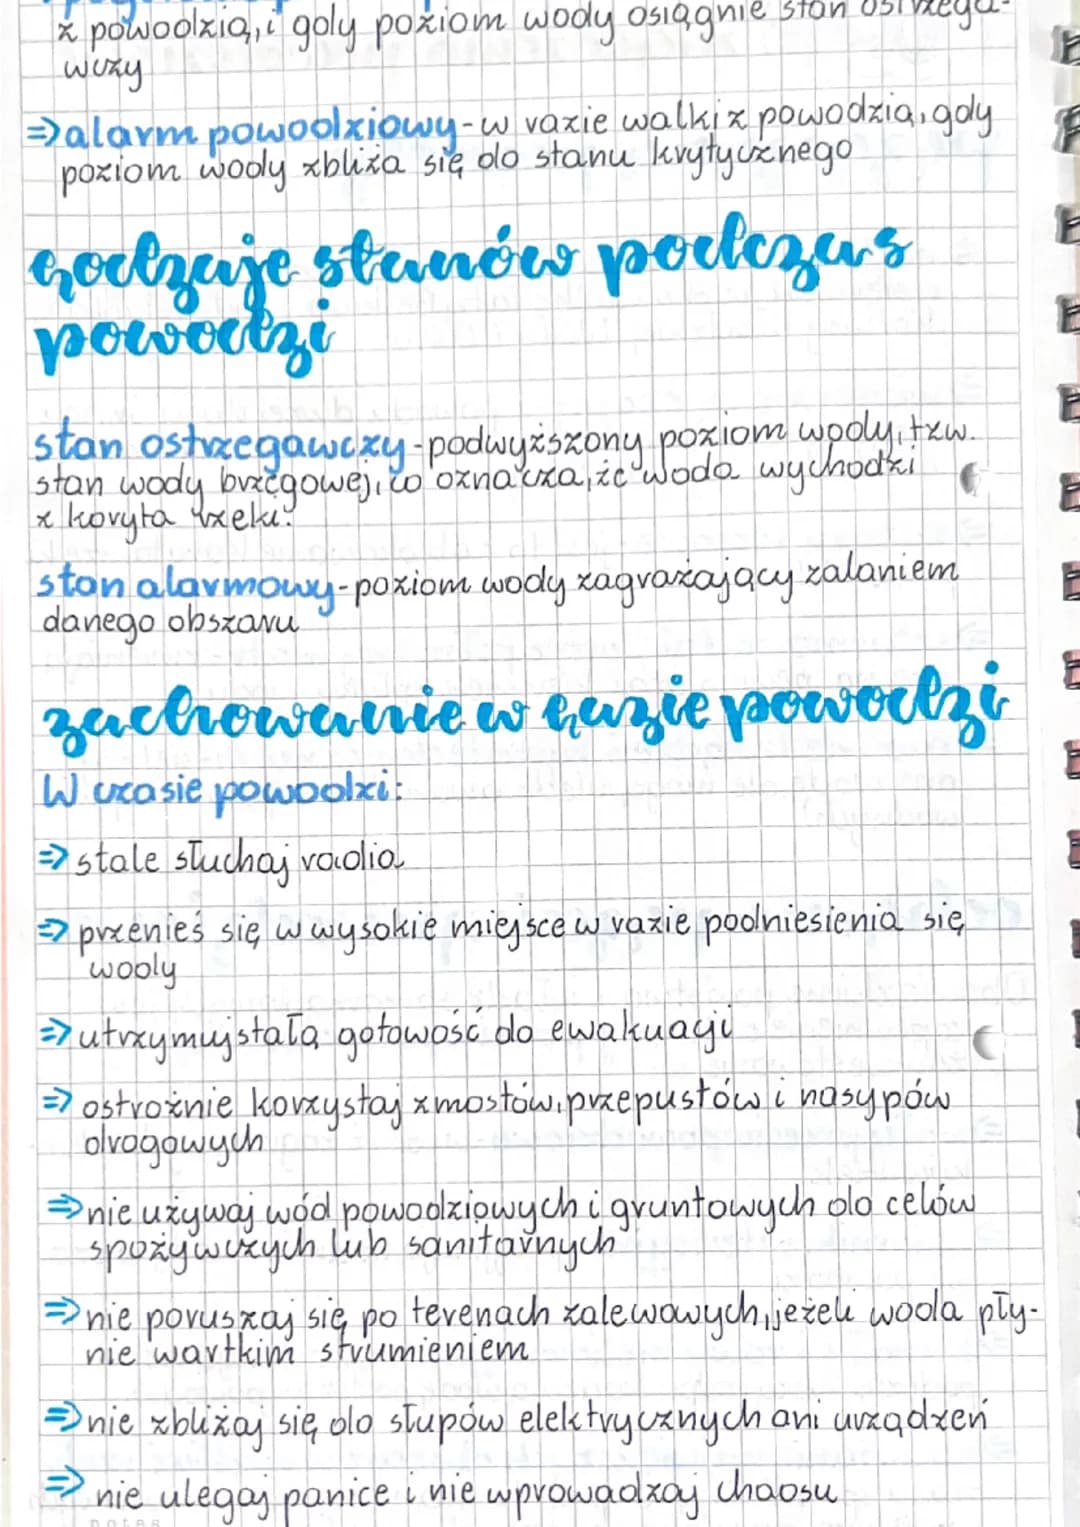 z powodzią, i gdy poziom wody osiągnie stan ostrzega-
wczy
=> alarm powodziowy - w razie walki z powodzią, gdy
poziom wody zbliża się do stanu krytycznego
rodzaje stanów podczas
powodzi
stan ostrzegawczy - podwyższony poziom wody, tzw.
stan wody brzegowej, co oznacza, że woda wychodzi
z koryta rzeki.
stan alarmowy - poziom wody zagrażający zalaniem
danego obszaru
zachowanie w razie powodzi
W czasie powodzi:
=> stale słuchaj radia
=> przenieś się w wysokie miejsce w razie podniesienia się
wody
=> utrzymuj stałą gotowość do ewakuacji
=> ostrożnie korzystaj z mostów, przepustów i nasypów
drogowych
=> nie używaj wód powodziowych i gruntowych do celów
spożywczych lub sanitarnych
=> nie poruszaj się po terenach zalewowych, jeżeli woda pły-
nie wartkim strumieniem
=> nie zbliżaj się do słupów elektrycznych ani urządzeń
=> nie ulegaj panice i nie wprowadzaj chaosu
notes